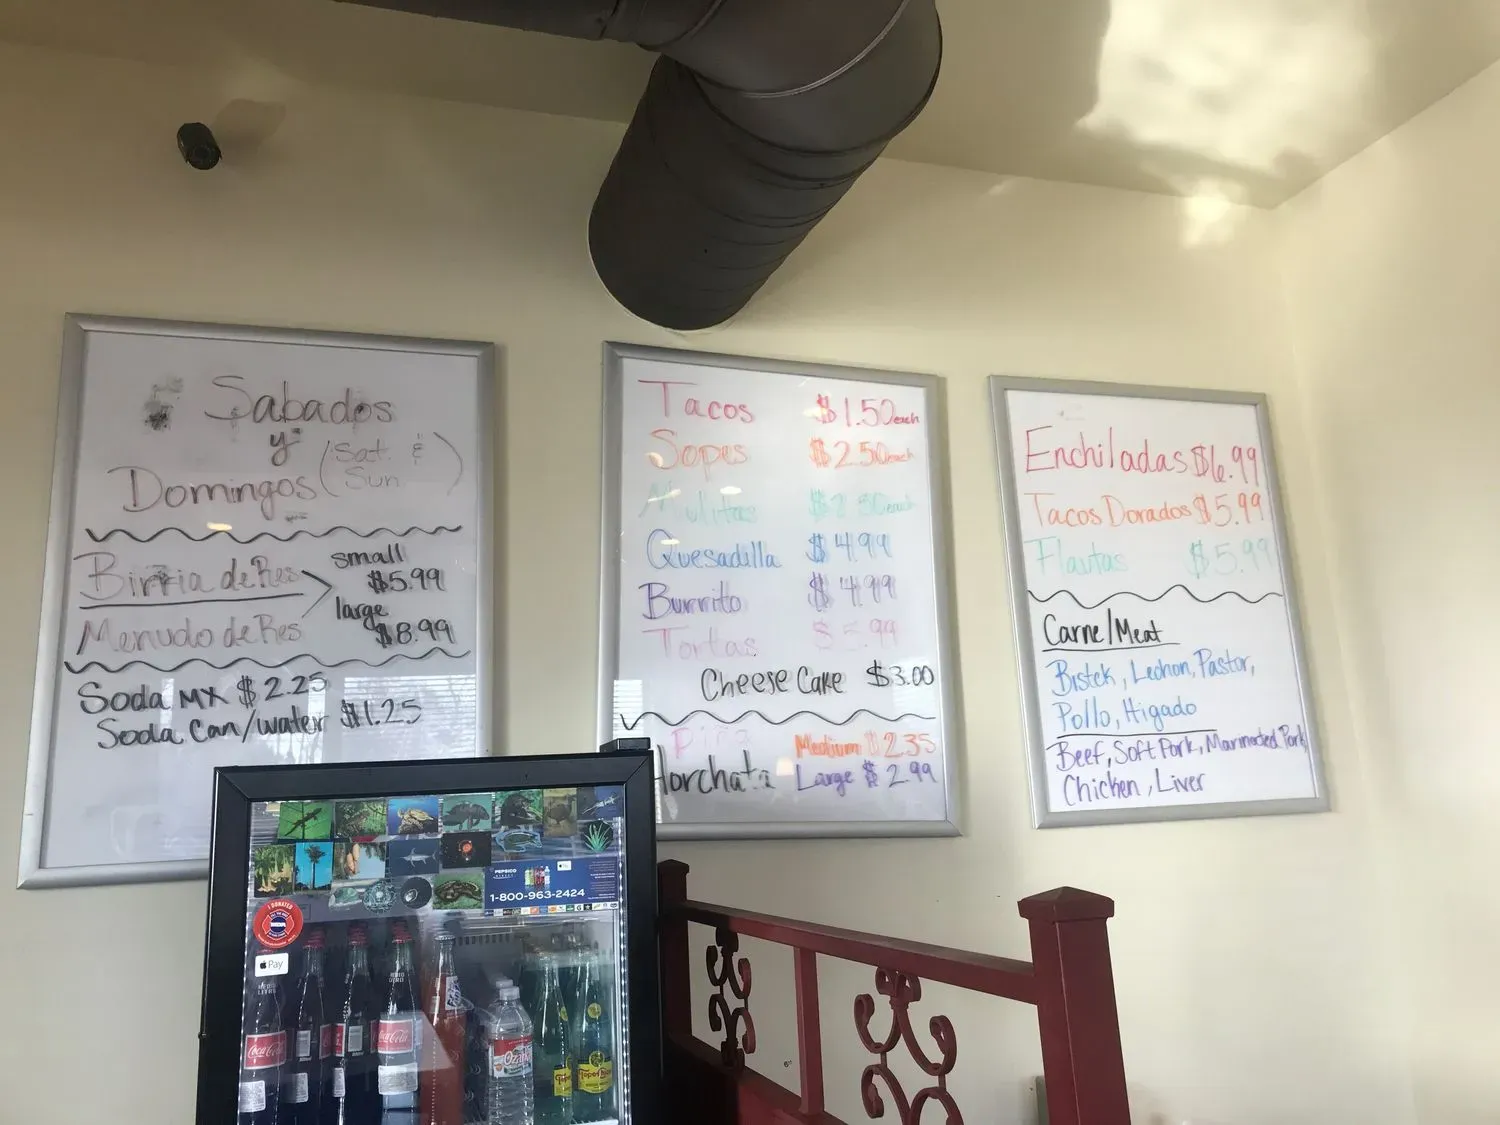 Sabados
y
Domingos (Sat. & Sun)
Birria de Res
Menudo de Res
small
$5.99
large
$8.99
Soda MX $2.25
Soda Can/water $1.25
Tacos $1.50 each
Sopes $2.50 each
Mulitas $2.50 each
Quesadilla $4.99
Burrito $4.99
Tortas $5.99
Cheese Cake $3.00
Piña Medium $2.35
Horchata Large $2.99
Enchiladas $6.99
Tacos Dorados $5.99
Flautas $5.99
Carne/Meat
Bistek, Lechon, Pastor,
Pollo, Higado
Beef, Soft Pork, Marinated Pork
Chicken, Liver
PEPSICO
1-800-963-2424
I DONATED
Pay
MEDIO
LITRO
Coca-Cola
Coca-Cola
Ozarka
Topo Chico